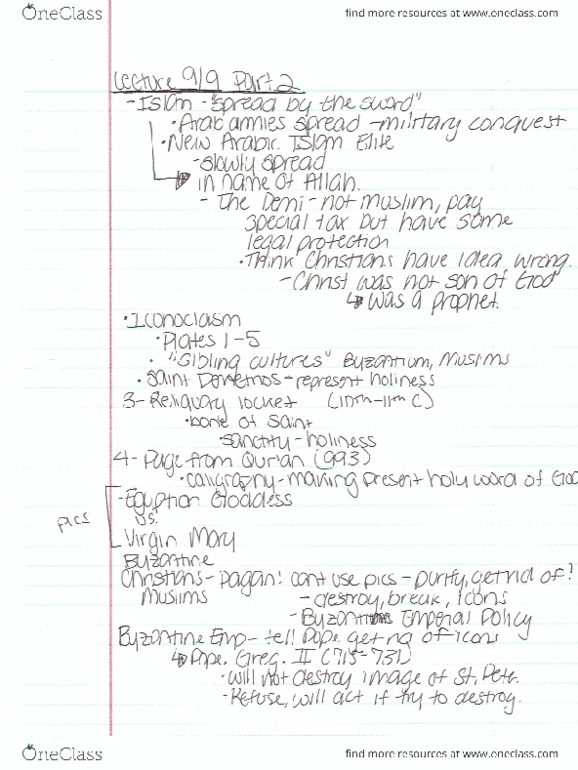 OneClass
find more resources at www.oneclass.com
Lecture 9/9 Part 2
- Islam - "spread by the sword"
• Arab armies spread - military conquest
• New Arabic Islam Elite
- slowly spread
in name of Allah.
- The Demi - not muslim, pay
special tax but have some
legal protection
• Think Christians have idea wrong.
- Christ was not son of God
↳ was a prophet.
• Iconoclasm
• Plates 1-5
• "Sibling cultures" Byzantium, Muslims
• Saint Demetrios - represent holiness
3 - Reliquary locket (10th-11th C)
• bone of saint
• sanctity - holiness
4 - Page from Qur'an (993)
• caligraphy - making present holy word of God
pics
- Egyptian Goddess
vs.
Virgin Mary
Byzantine
Christians - pagan! cant use pics - purify, get rid of?
Muslims - destroy, break, icons
- Byzantine Emperial Policy
Byzantine Emp - tell Pope get rid of icons
↳ Pope. Greg. II (715-731)
• will not destroy image of St. Pete.
- Refuse, will act if try to destroy.
OneClass
find more resources at www.oneclass.com